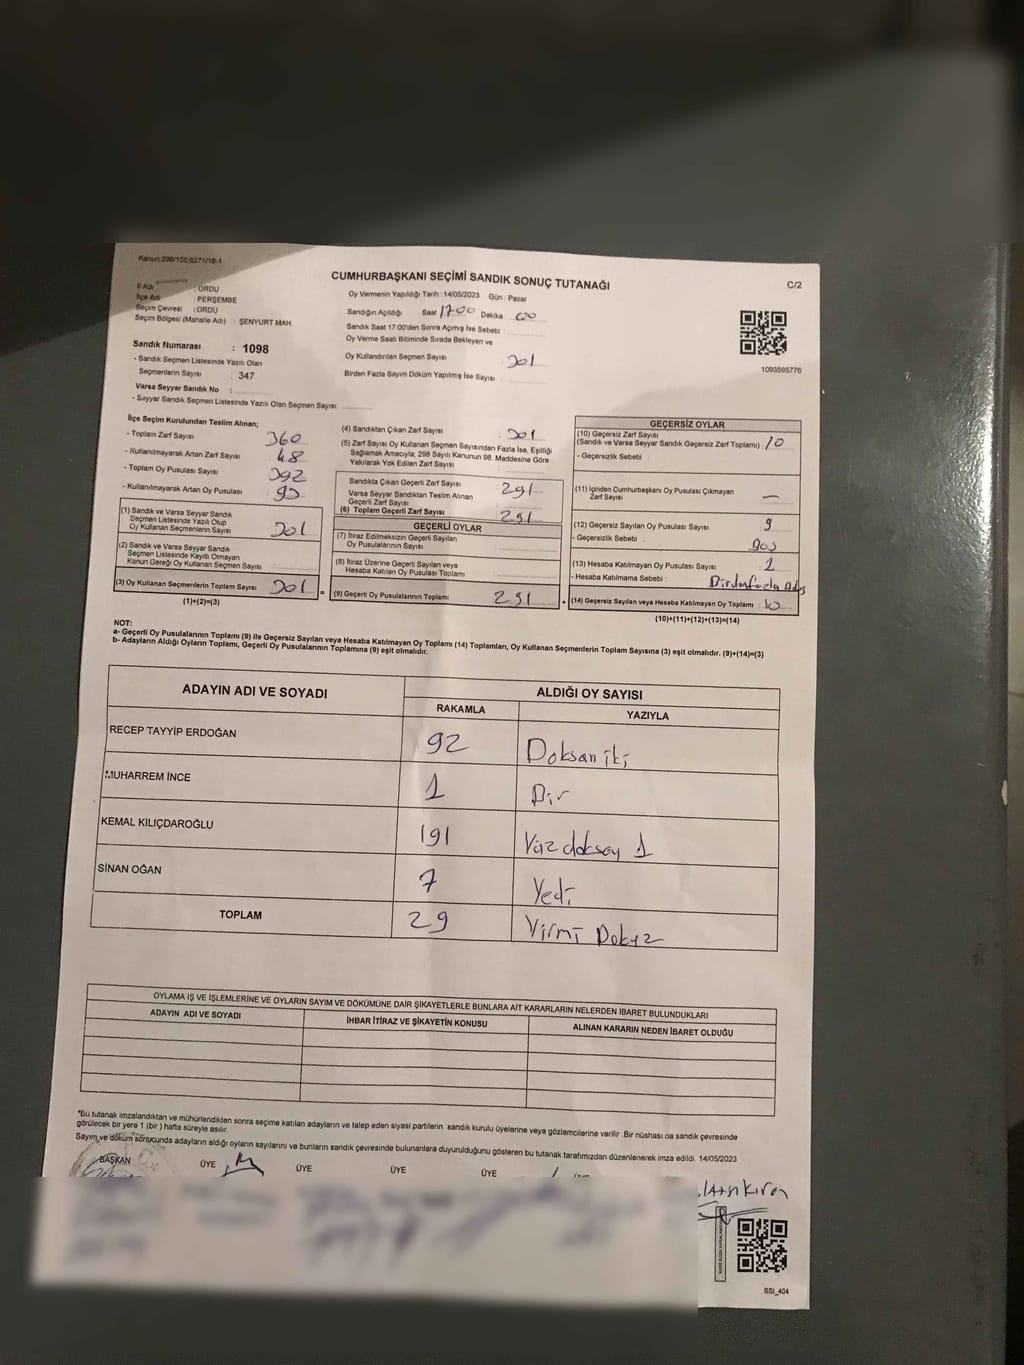 Kanun:298/105;6271/18-1
CUMHURBAŞKANI SEÇİMİ SANDIK SONUÇ TUTANAĞI
C/2
İl Adı : ORDU
İlçe Adı : PERŞEMBE
Seçim Çevresi : ORDU
Seçim Bölgesi (Mahalle Adı) : ŞENYURT MAH
Sandık Numarası : 1098
- Sandık Seçmen Listesinde Yazılı Olan
Seçmenlerin Sayısı : 347
Varsa Seyyar Sandık No :
- Seyyar Sandık Seçmen Listesinde Yazılı Olan Seçmen Sayısı
Oy Vermenin Yapıldığı Tarih : 14/05/2023 Gün : Pazar
Sandığın Açıldığı Saat 1700 Dakika 00
Sandık Saat 17:00'den Sonra Açılmış İse Sebebi :
Oy Verme Saati Bitiminde Sırada Bekleyen ve
Oy Kullandırılan Seçmen Sayısı 301
Birden Fazla Sayım Döküm Yapılmış İse Sayısı
1093595776
İlçe Seçim Kurulundan Teslim Alınan;
- Toplam Zarf Sayısı 360
- Kullanılmayarak Artan Zarf Sayısı 48
- Toplam Oy Pusulası Sayısı 392
- Kullanılmayarak Artan Oy Pusulası
(1) Sandık ve Varsa Seyyar Sandık
Seçmen Listesinde Yazılı Olup
Oy Kullanan Seçmenlerin Sayısı 301
(2) Sandık ve Varsa Seyyar Sandık
Seçmen Listesinde Kayıtlı Olmayan
Kanun Gereği Oy Kullanan Seçmen Sayısı :
(3) Oy Kullanan Seçmenlerin Toplam Sayısı 301
(1)+(2)=(3)
(4) Sandıktan Çıkan Zarf Sayısı 301
(5) Zarf Sayısı Oy Kullanan Seçmen Sayısından Fazla İse, Eşitliği
Sağlamak Amacıyla, 298 Sayılı Kanunun 98. Maddesine Göre
Yakılarak Yok Edilen Zarf Sayısı
Sandıkta Çıkan Geçerli Zarf Sayısı 291
Varsa Seyyar Sandıktan Teslim Alınan
Geçerli Zarf Sayısı
(6) Toplam Geçerli Zarf Sayısı 291
GEÇERLİ OYLAR
(7) İtiraz Edilmeksizin Geçerli Sayılan
Oy Pusulalarının Sayısı
(8) İtiraz Üzerine Geçerli Sayılan veya
Hesaba Katılan Oy Pusulası Toplamı
(9) Geçerli Oy Pusulalarının Toplamı 291
GEÇERSİZ OYLAR
(10) Geçersiz Zarf Sayısı
(Sandık ve Varsa Seyyar Sandık Geçersiz Zarf Toplamı) : 10
- Geçersizlik Sebebi
(11) İçinden Cumhurbaşkanı Oy Pusulası Çıkmayan
Zarf Sayısı —
(12) Geçersiz Sayılan Oy Pusulası Sayısı 9
- Geçersizlik Sebebi :
(13) Hesaba Katılmayan Oy Pusulası Sayısı 1
- Hesaba Katılmama Sebebi : Birdenfazla
(14) Geçersiz Sayılan veya Hesaba Katılmayan Oy Toplamı : 10
(10)+(11)+(12)+(13)=(14)
NOT:
a- Geçerli Oy Pusulalarının Toplamı (9) ile Geçersiz Sayılan veya Hesaba Katılmayan Oy Toplamı (14) Toplamları, Oy Kullanan Seçmenlerin Toplam Sayısına (3) eşit olmalıdır. (9)+(14)=(3)
b- Adayların Aldığı Oyların Toplamı, Geçerli Oy Pusulalarının Toplamına (9) eşit olmalıdır.
ADAYIN ADI VE SOYADI
ALDIĞI OY SAYISI
RAKAMLA YAZIYLA
RECEP TAYYİP ERDOĞAN 92 Doksan iki
MUHARREM İNCE 1 Bir
KEMAL KILIÇDAROĞLU 191 Yüz doksay 1
SİNAN OĞAN 7 Yedi
TOPLAM 29 Yirmi Dokuz
OYLAMA İŞ VE İŞLEMLERİNE VE OYLARIN SAYIM VE DÖKÜMÜNE DAİR ŞİKAYETLERLE BUNLARA AİT KARARLARIN NELERDEN İBARET BULUNDUKLARI
ADAYIN ADI VE SOYADI İHBAR İTİRAZ VE ŞİKAYETİN KONUSU ALINAN KARARIN NEDEN İBARET OLDUĞU
*Bu tutanak imzalandıktan ve mühürlendikten sonra seçime katılan adayların ve talep eden siyasi partilerin sandık kurulu üyelerine veya gözlemcilerine verilir .Bir nüshası da sandık çevresinde
görülecek bir yere 1 (bir ) hafta süreyle asılır.
Sayım ve döküm sonucunda adayların aldığı oyların sayılarını ve bunların sandık çevresinde bulunanlara duyurulduğunu gösteren bu tutanak tarafımızdan düzenlenerek imza edildi. 14/05/2023
BAŞKAN ÜYE ÜYE ÜYE ÜYE
SSI_404